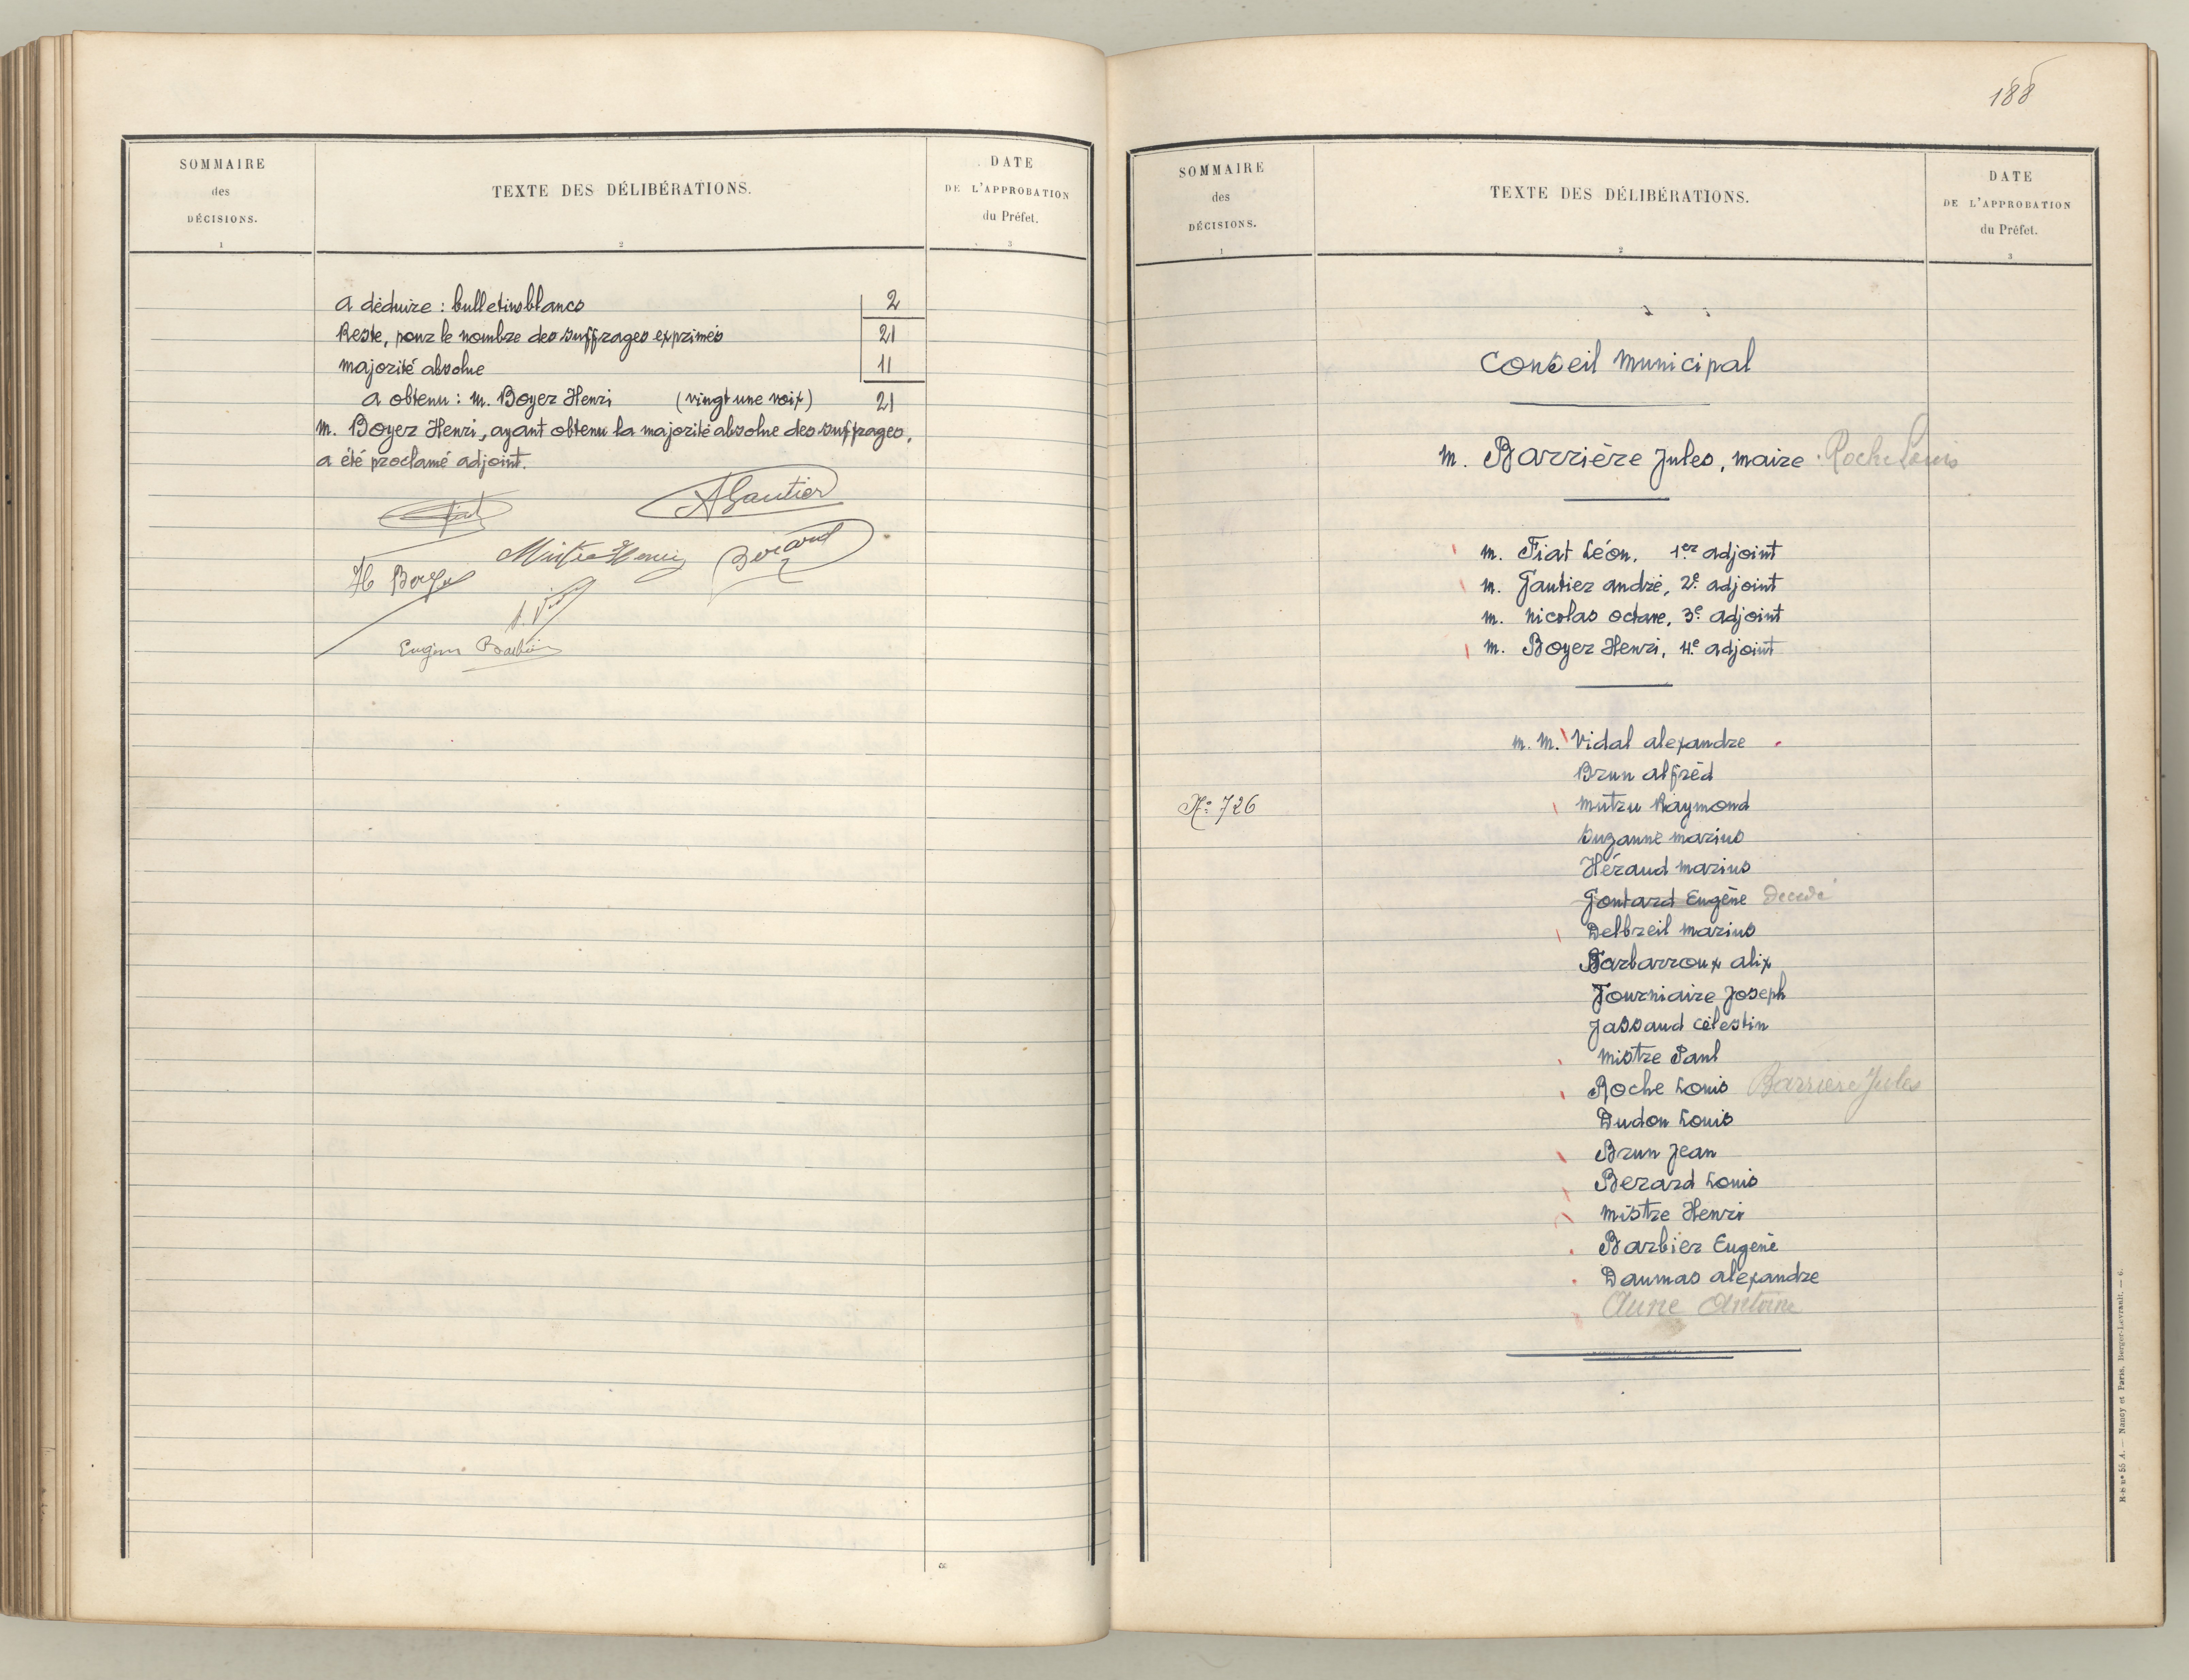 SOMMAIRE
des
DÉCISIONS.
1
TEXTE DES DÉLIBÉRATIONS.
2
DATE
DE L'APPROBATION
du Préfet.
3
a déduire : bulletins blancs 2
Reste, pour le nombre des suffrages exprimés 21
majorité absolue 11
a obtenu : m. Boyer Henri (vingt une voix) 21
m. Boyer Henri, ayant obtenu la majorité absolue des suffrages,
a été proclamé adjoint.
Fiat
AGautier
Mistre Henri
Berard
H Boyer
A. Vidal
Eugène Barbier
188
SOMMAIRE
des
DÉCISIONS.
1
TEXTE DES DÉLIBÉRATIONS.
2
DATE
DE L'APPROBATION
du Préfet.
3
Conseil Municipal
m. Barrière Jules, maire. Roche Louis
m. Fiat Léon, 1er adjoint
m. Gautier andré, 2e adjoint
m. Nicolas octave, 3e adjoint
m. Boyer Henri, 4e adjoint
m. m. Vidal alexandre
Brun alfred
N° 726
Mutru Raymond
Suzanne marius
Héraud marius
Gontard Eugène Decedé
Delbreil marius
Barbarroux alix
Fourniaire Joseph
Jassaud célestin
Mistre Paul
Roche Louis Barriere Jules
Dudon Louis
Brun Jean
Berard Louis
Mistre Henri
Barbier Eugène
Daumas alexandre
Aune Antoine
R-is n° 55 A. — Nancy et Paris, Berger-Levrault. — 6.